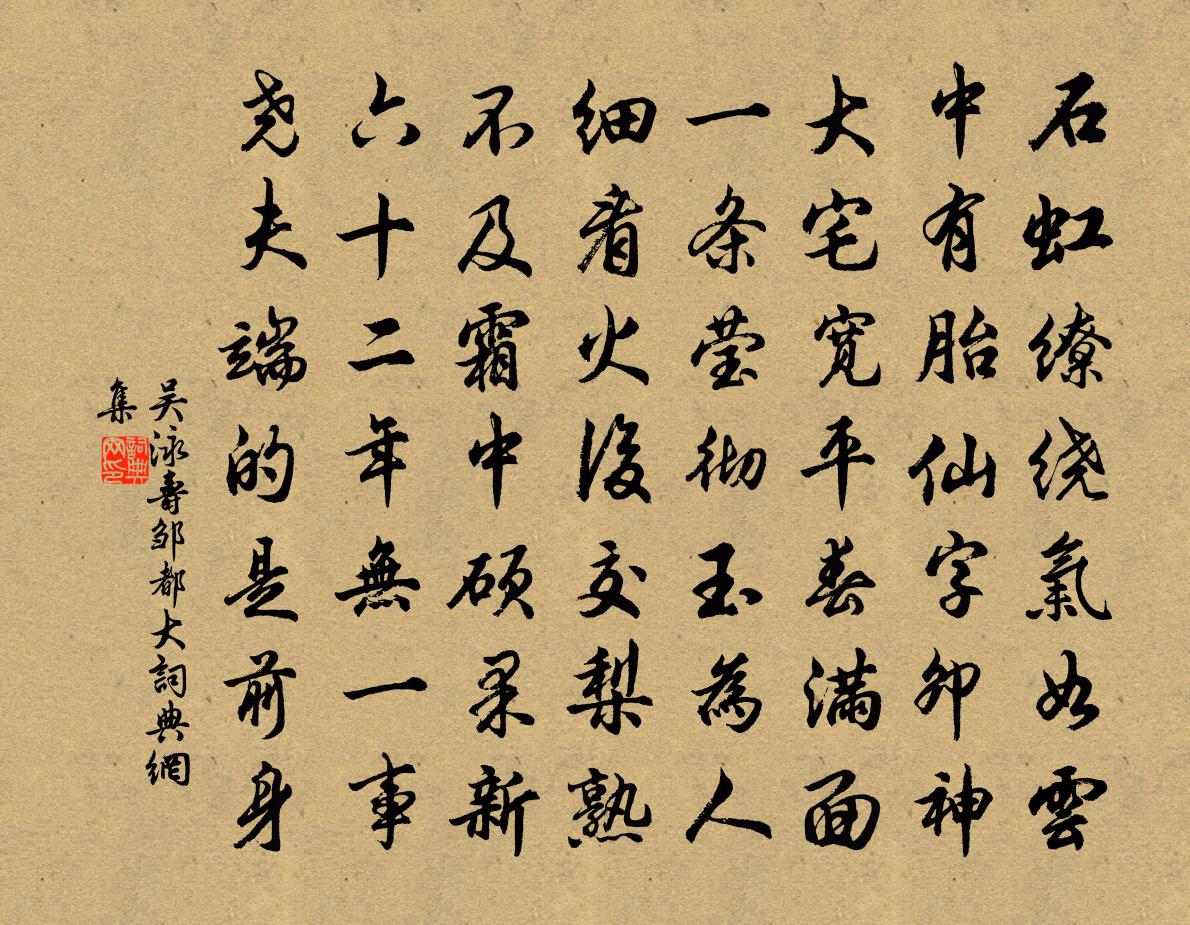 石虹缭绕氣如雲
中有胎仙字卯神
大宅寛平春满面
一条莹彻玉為人
细看火後交梨熟
不及霜中硕果新
六十二年無一事
尧夫端的是前身
吴泳壽邹都大詞典網
集
詞典網印